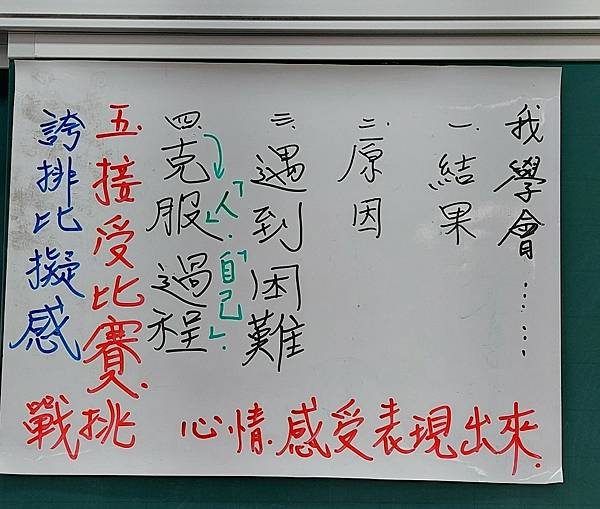 我學會......
一.結果
二.原因
三.遇到困難
「人」.「自己」.
四.克服過程
五.接受比賽.
誇排比擬感
戰挑
心情.感受表現出來.